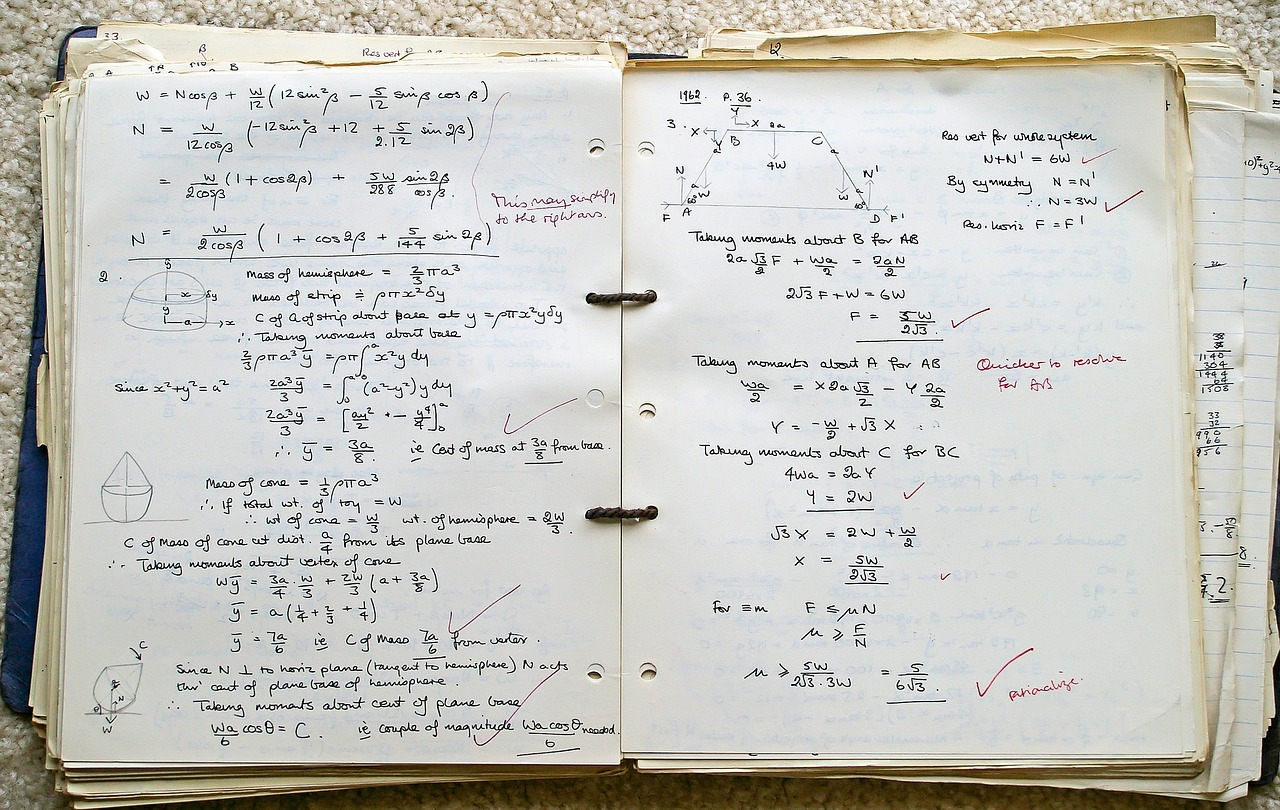 33.
β
Res vert
B
W = N cosβ + W/12 (12 sin²β − 5/12 sinβ cosβ)
N = W/12cosβ (−12 sin²β + 12 + 5/2.12 sin 2β)
= W/2cosβ (1 + cos2β) + 5W/288 sin2β/cosβ.
This may simplify
to the right ans.
N = W/2cosβ (1 + cos2β + 5/144 sin 2β)
2.
y
x
δy
y
a
x
Mass of hemisphere = 2/3 πa³
Mass of strip ≑ ρπx²δy
C of G of strip about base at y = ρπx²yδy
∴ Taking moments about base
2/3 ρπa³ȳ = ρπ∫₀ᵃ x²y dy
Since x²+y² = a² 2a³ȳ/3 = ∫₀ᵃ (a²−y²) y dy
2a³ȳ/3 = [ay²/2 + − y⁴/4]₀ᵃ
∴ ȳ = 3a/8 ie Cent of mass at 3a/8 from base.
Mass of cone = 1/3 ρπa³
∴ If total wt. of toy = W
∴ wt of cone = W/3 wt. of hemisphere = 2W/3.
C of Mass of cone at dist. a/4 from its plane base
∴ Taking moments about vertex of cone
Wȳ = 3a/4 · W/3 + 2W/3 (a + 3a/8)
ȳ = a(1/4 + 2/3 + 1/4)
ȳ = 7a/6 ie C of Mass 7a/6 from vertex.
C
N
θ
W
Since N ⊥ to horiz plane (tangent to hemisphere) N acts
thro' cent of plane base of hemisphere.
∴ Taking moments about cent of plane base
Wa/6 cosθ = C. ie couple of magnitude Wa cosθ/6 needed.
12.
1962. P. 36.
3.
Y
X
X
2a
B
C
Y
a
a
4W
N
a
W
a
W
N'
60°
60°
F
A
D
F'
Res vert for whole system
N+N' = 6W
By symmetry N = N'
∴ N = 3W
Res. horiz F = F'
Taking moments about B for AB
2a √3/2 F + Wa/2 = 2aN/2
2√3 F + W = 6W
F = 5W/2√3.
Taking moments about A for AB
Quicker to resolve
for AB
Wa/2 = X 2a √3/2 − Y 2a/2
Y = −W/2 + √3 X
Taking moments about C for BC
4Wa = 2aY
Y = 2W
√3 X = 2W + W/2
X = 5W/2√3
For ≡m F ≤ μN
μ ≥ F/N
μ ≥ 5W/2√3·3W = 5/6√3.
rationalize.
38
38
1140
304
1444
64
1508
33
32
990
66
956